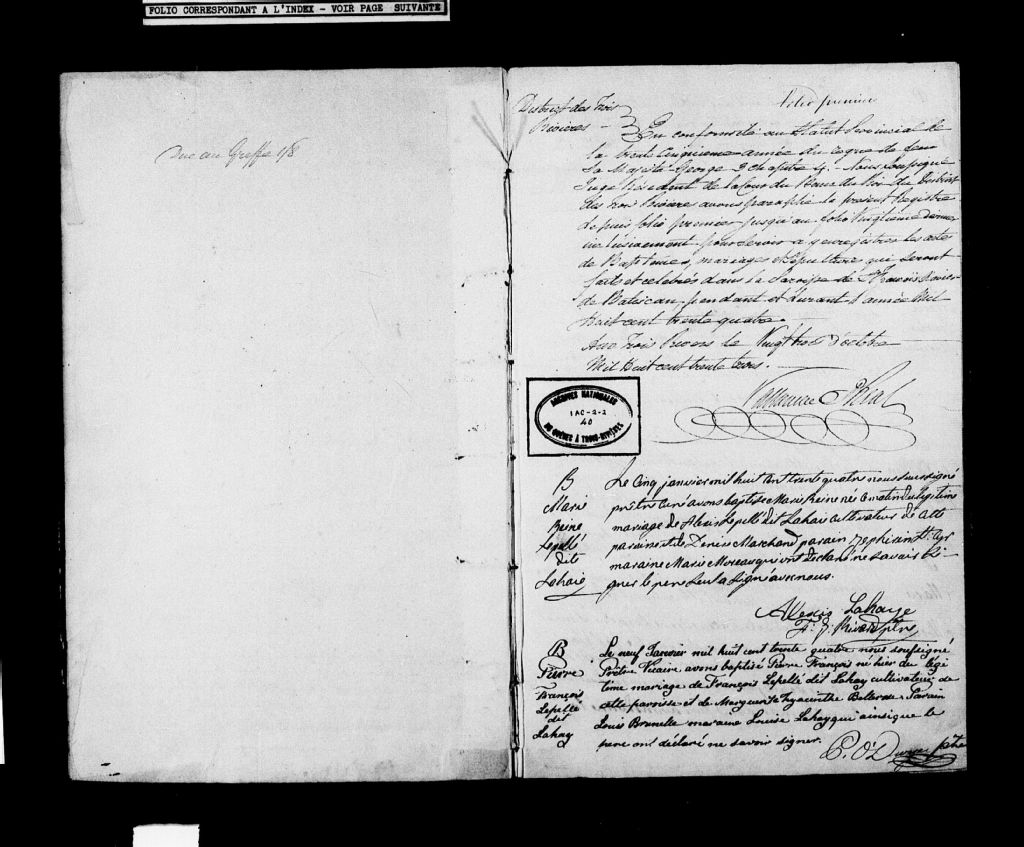 FOLIO CORRESPONDANT A L'INDEX - VOIR PAGE SUIVANTE
Due au Greffe 1/8
folio premier
District des Trois
Rivieres
En conformité au Statut Provincial de
la trente Cinquieme année du regne de feu
Sa Majesté George 3 Chapitre 4. Nous soussigné
Juge Resident de la Cour du Banc du Roi du District
des Trois Rivieres avons paraphé le present Registre
depuis folio premier jusqu'au folio Vingtieme dernier
inclusivement pour servir a y enregistrer les actes
de Baptemes, mariages et Sepulture qui seront
faits et celebrés dans la Paroisse de St. François Xavier
de Batiscan pendant et durant l'année Mil
Huit cent trente quatre.
Aux Trois Rivieres le Vingt trois d'octobre
Mil Huit cent trente trois.
ARCHIVES NATIONALES
1AC-2-2
40
DU QUÉBEC À TROIS-RIVIÈRES
B
Marie
Reine
Lepellé
dit
Lahaie
Le cinq janvier mil huit cent trent quatre nous soussigné
prêtre curé avons baptisé Marie Reine née ce matin du legitime
mariage de Alexis Lepellé dit Lahaie cultivateur de cette
paroisse et de Denise Marchand parain Zephirin St. Cyr
maraine Marie Moreau qui ont déclaré ne savoir si-
gner le pere seul a signé avec nous.
Alexis Lahaye
F. J. Rivard ptre
B
Pierre
François
Lepellé
dit
Lahay
Le neuf Janvier mil huit cent trente quatre nous soussigné
Prêtre Vicaire avons baptisé Pierre François né hier du légi
time mariage de François Lepellé dit Lahay cultivateur de
cette paroisse et de Marguerite Hyacinthe Belleruse Parain
Louis Brunelle maraine Louise Lahay qui ainsique le
pere ont déclaré ne savoir signer.